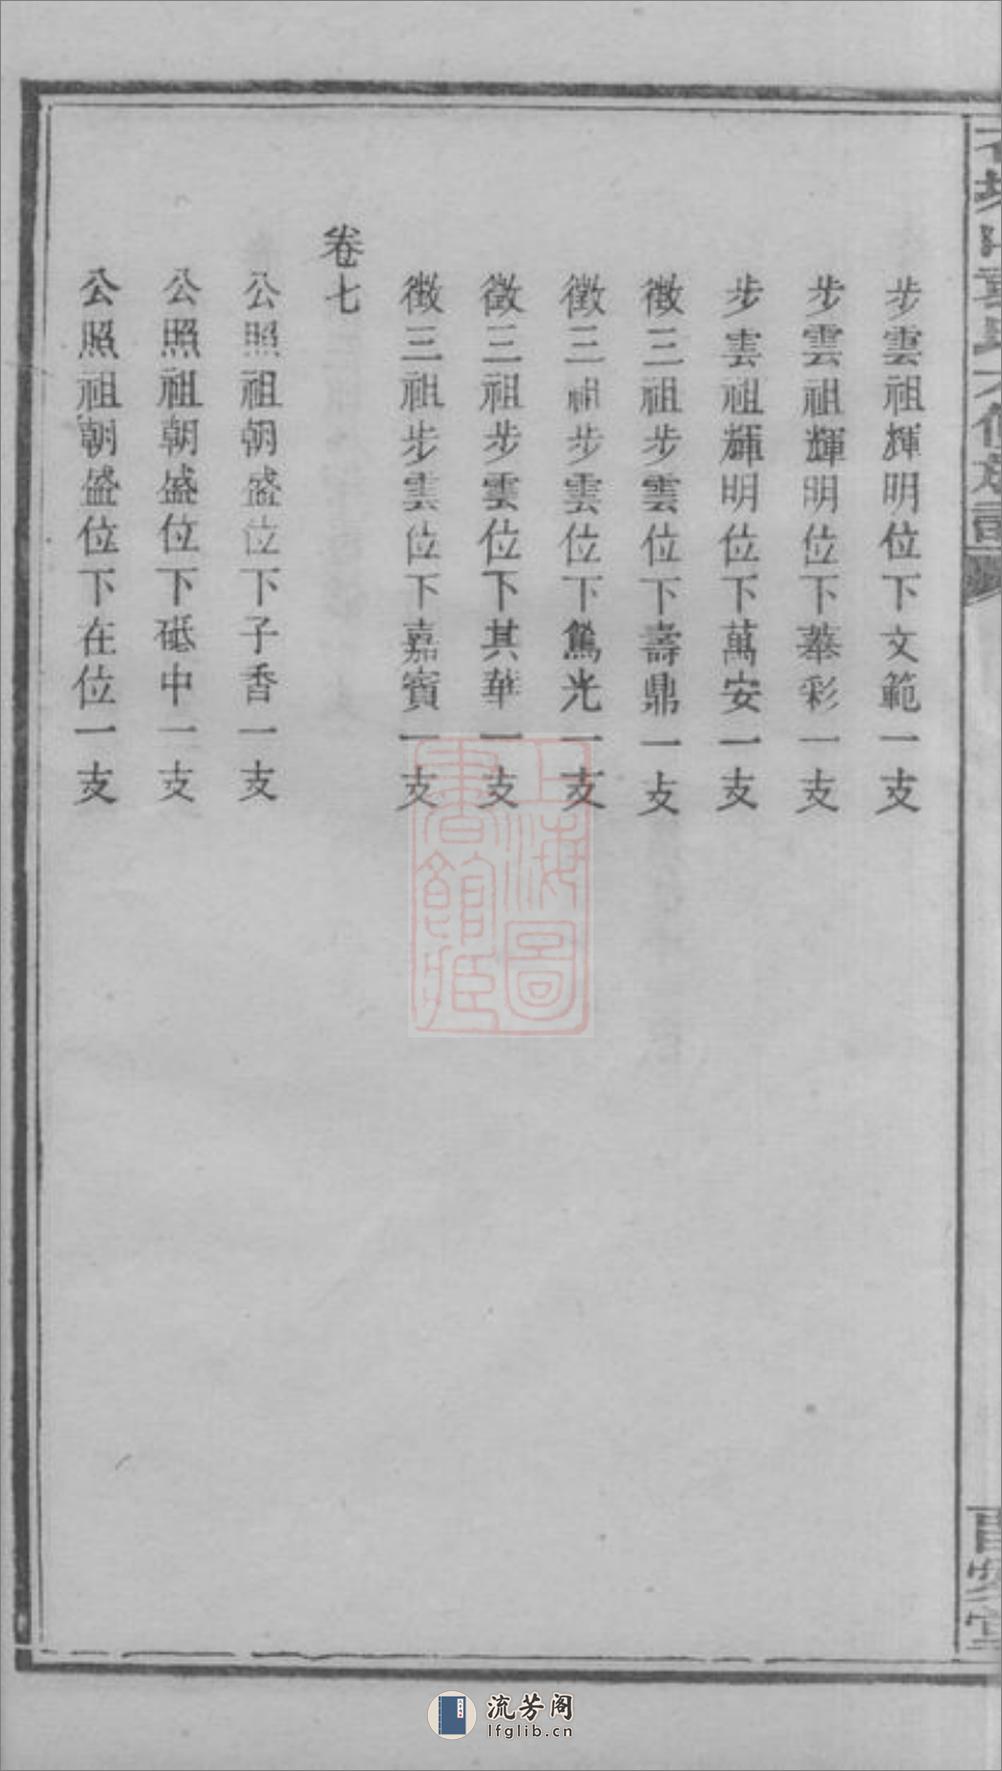 步雲祖輝明位下文範一支
步雲祖輝明位下菶彩一支
步雲祖輝明位下萬安一支
徵三祖步雲位下壽鼎一支
徵三祖步雲位下篤光一支
徵三祖步雲位下其華一支
徵三祖步雲位下嘉賓一支
卷七
公照祖朝盛位下子香一支
公照祖朝盛位下砥中一支
公照祖朝盛位下在位一支
上海圖
書館藏
流芳阁
lfglib.cn